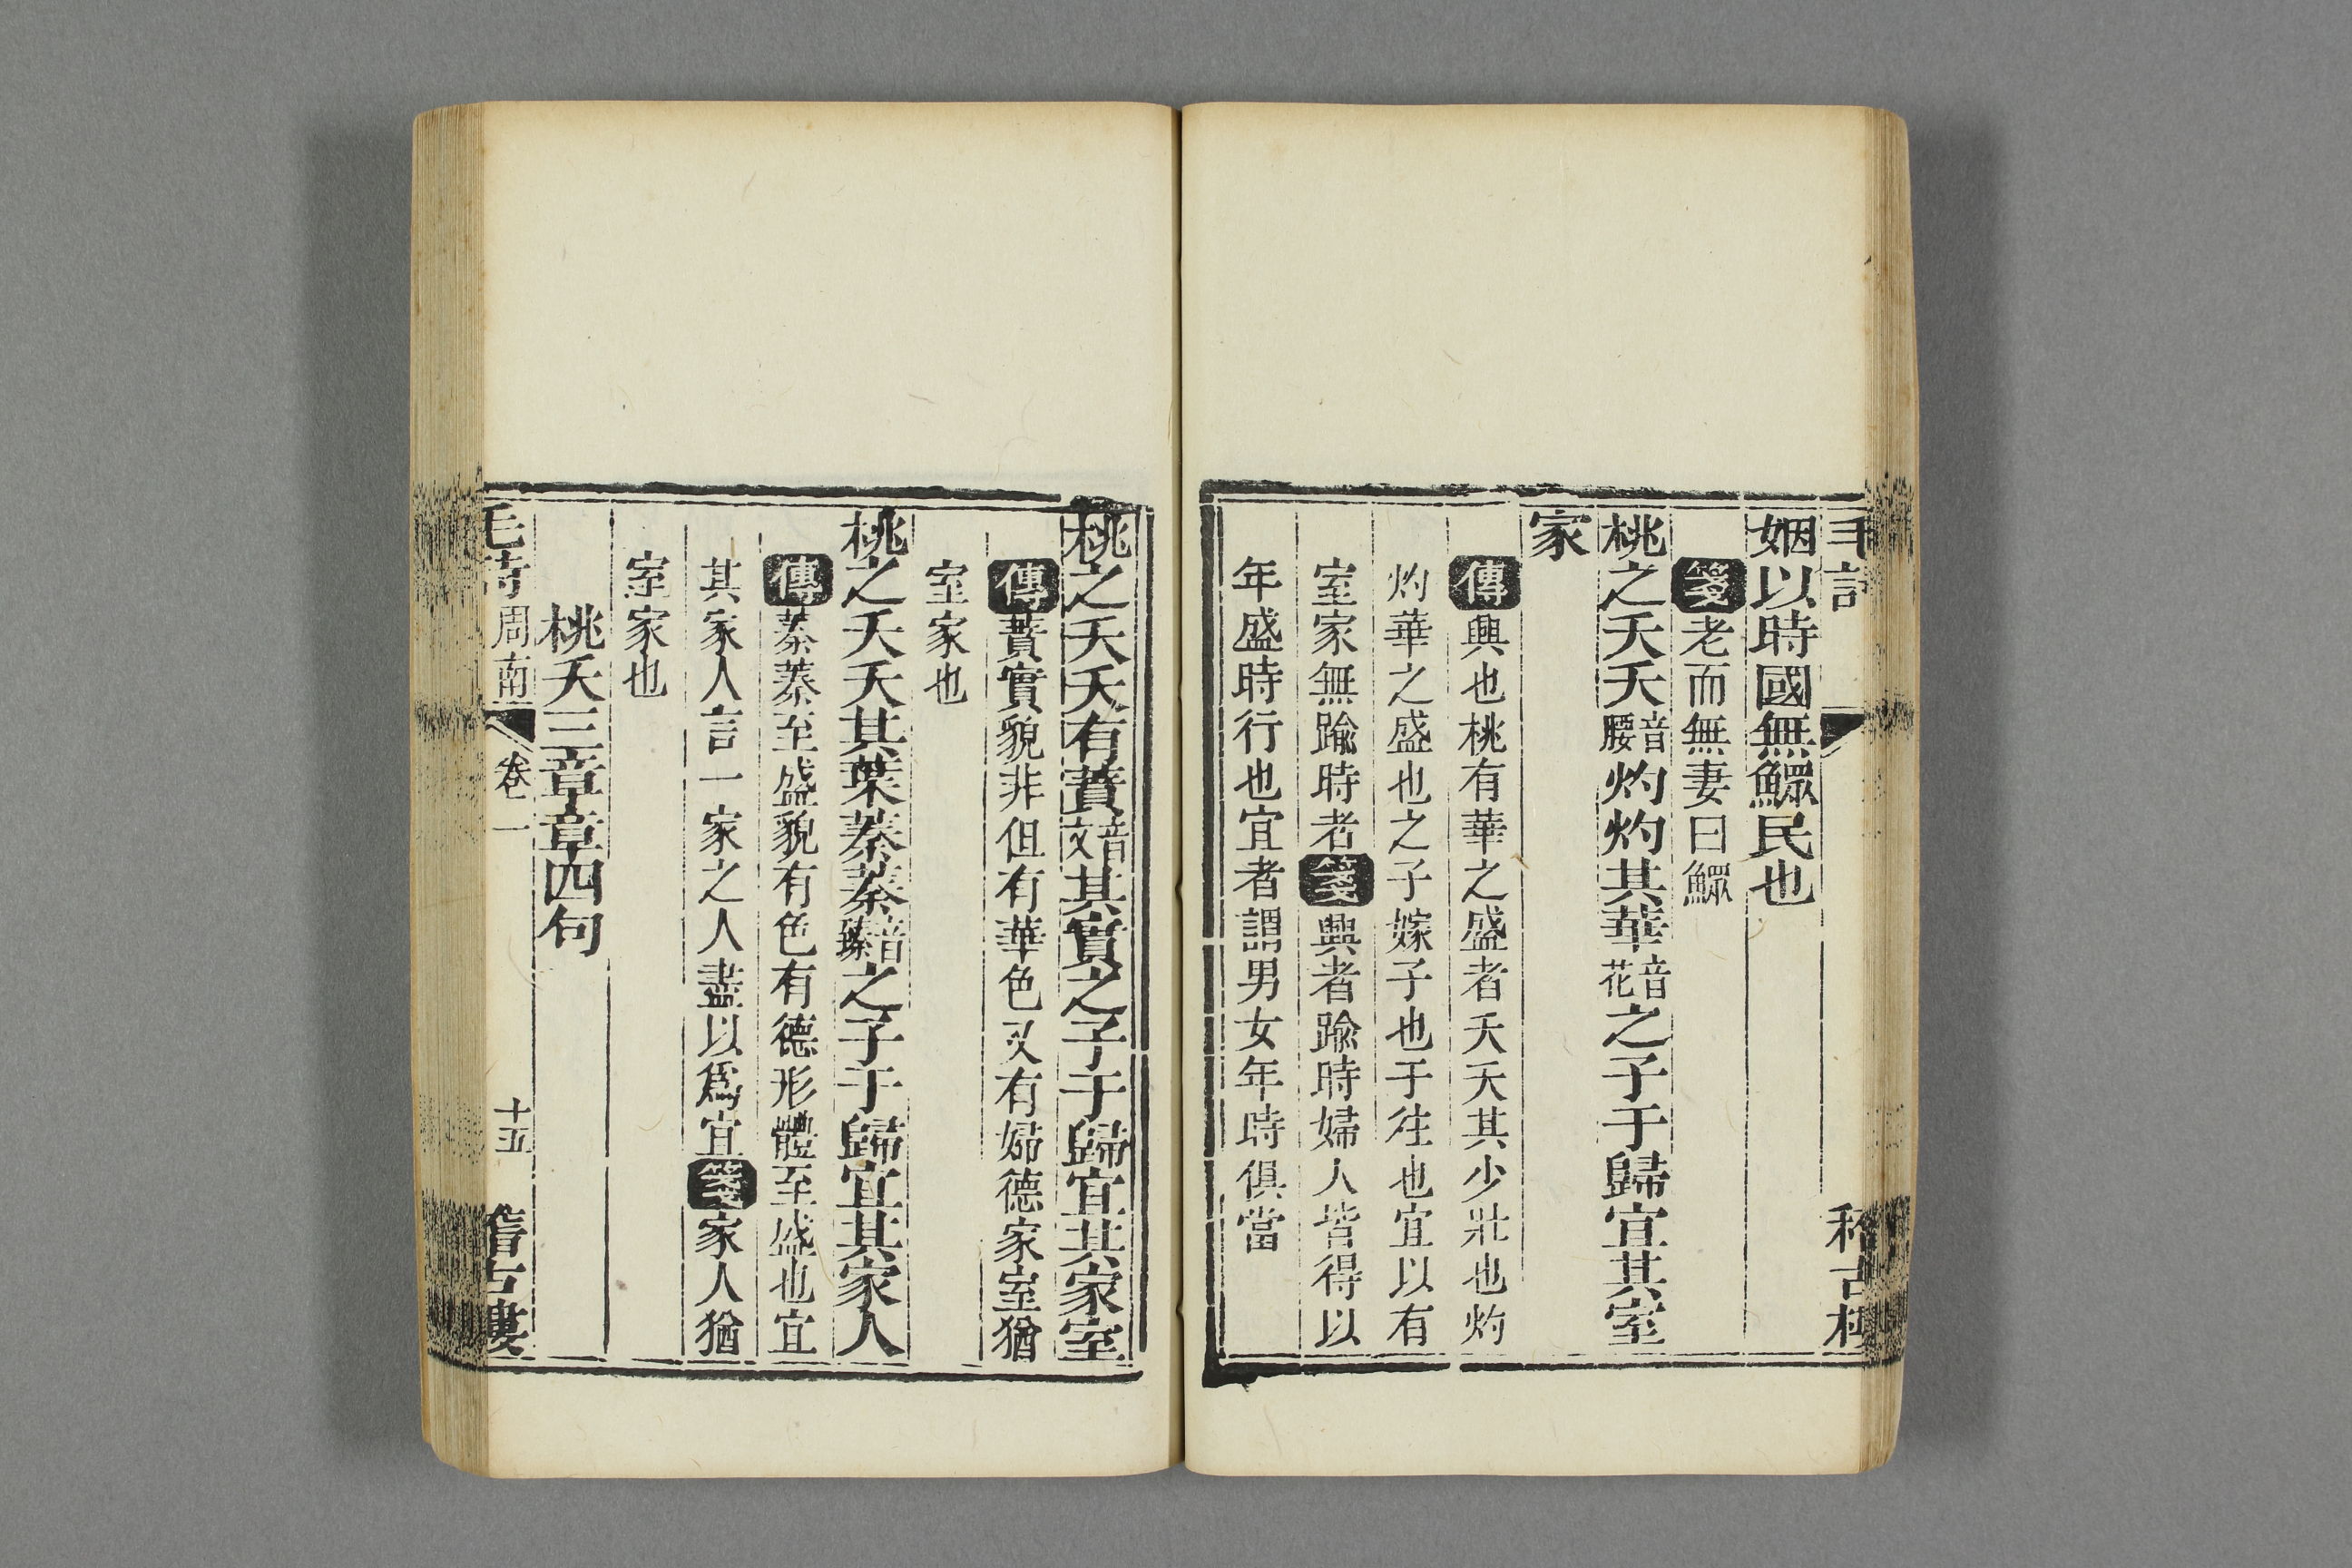 姻以時國無鰥民也
箋老而無妻曰鰥
桃之夭夭音腰灼灼其華音花之子于歸宜其室
家
傳興也桃有華之盛者夭夭其少壯也灼
灼華之盛也之子嫁子也于往也宜以有
室家無踰時者箋興者踰時婦人皆得以
年盛時行也宜者謂男女年時俱當
桃之夭夭有蕡音文其實之子于歸宜其家室
傳蕡實貌非但有華色又有婦德家室猶
室家也
桃之夭夭其葉蓁蓁音臻之子于歸宜其家人
傳蓁蓁至盛貌有色有德形體至盛也宜
其家人言一家之人盡以爲宜箋家人猶
室家也
桃夭三章章四句
毛詩周南 卷一 十五 稽古樓